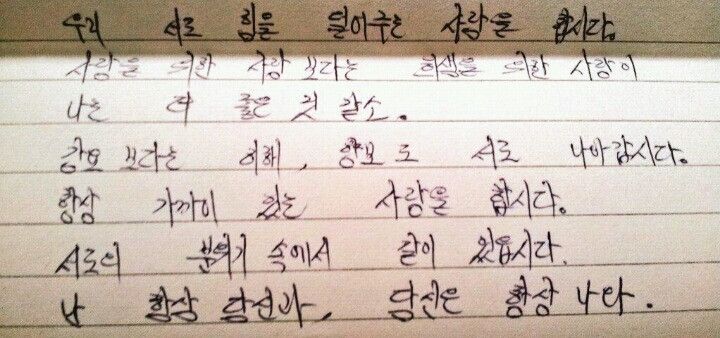 우리 서로 짐을 덜어주는 사랑을 합시다.
사랑을 위한 사랑 보다는 희생을 위한 사랑이
나는 더 좋은 것 같소.
강요 보다는 이해, 양보로 서로 나아갑시다.
항상 가까이 있는 사랑을 합시다.
서로의 분위기 속에서 같이 있읍시다.
난 항상 당신과, 당신은 항상 나와.